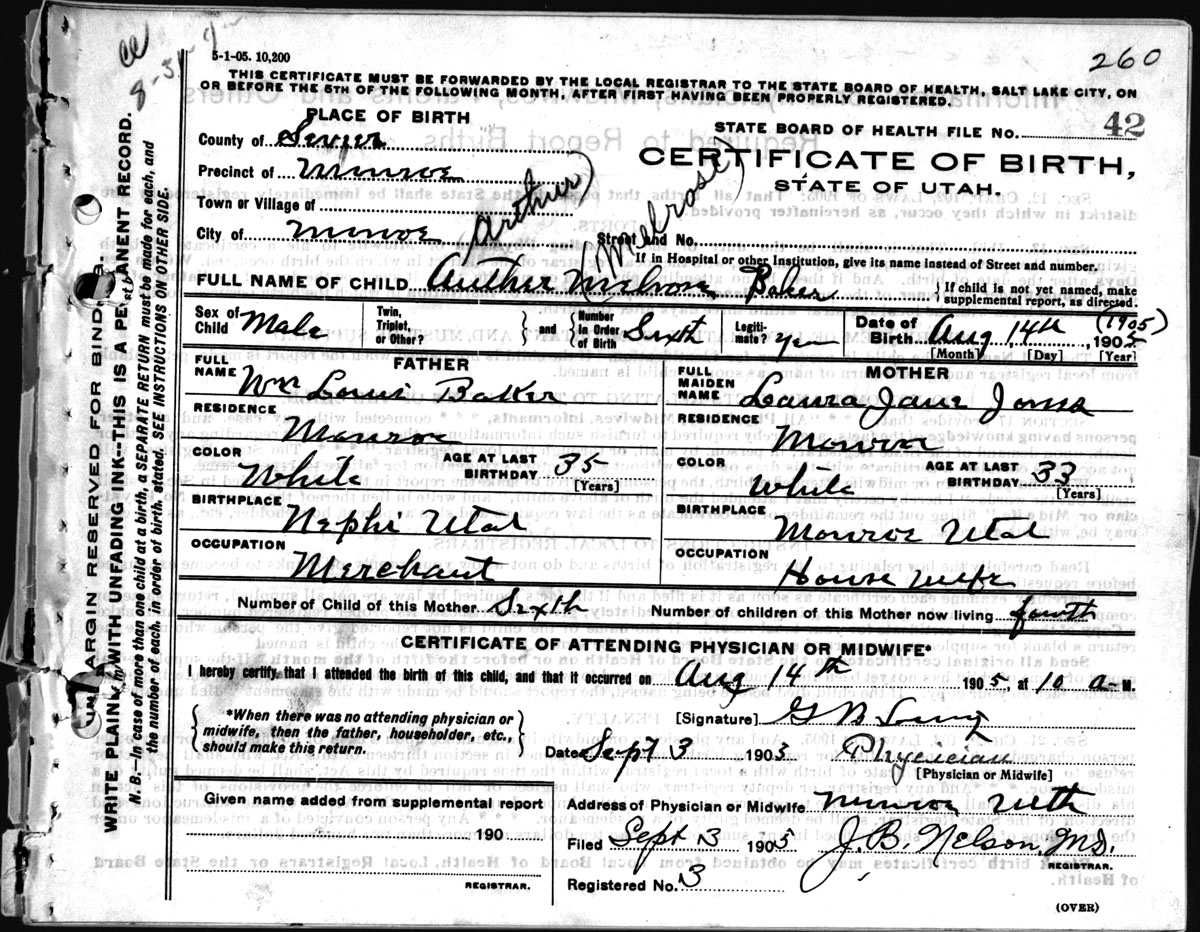 260
5-1-05. 10,200
THIS CERTIFICATE MUST BE FORWARDED BY THE LOCAL REGISTRAR TO THE STATE BOARD OF HEALTH, SALT LAKE CITY, ON
OR BEFORE THE 5TH OF THE FOLLOWING MONTH, AFTER FIRST HAVING BEEN PROPERLY REGISTERED.
PLACE OF BIRTH
STATE BOARD OF HEALTH FILE NO. 42
County of Sevier
CERTIFICATE OF BIRTH,
Precinct of Monroe
STATE OF UTAH.
Town or Village of
City of Monroe
Street and No.
If in Hospital or other Institution, give its name instead of Street and number.
Arthur (Melrose)
FULL NAME OF CHILD Auther Melrose Baker
If child is not yet named, make
supplemental report, as directed.
Sex of Child Male
Twin, Triplet, or Other?
and
Number In Order of Birth Sixth
Legiti-mate? Yes
Date of Birth Aug 14th, 1905 (1905)
[Month] [Day] [Year]
FATHER
MOTHER
FULL NAME Wm Louis Baker
FULL MAIDEN NAME Laura Jane Jones
RESIDENCE Monroe
RESIDENCE Monroe
COLOR White AGE AT LAST BIRTHDAY 35 [Years]
COLOR White AGE AT LAST BIRTHDAY 33 [Years]
BIRTHPLACE Nephi Utah
BIRTHPLACE Monroe Utah
OCCUPATION Merchant
OCCUPATION House Wife
Number of Child of this Mother Sixth Number of children of this Mother now living fourth
CERTIFICATE OF ATTENDING PHYSICIAN OR MIDWIFE*
I hereby certify that I attended the birth of this child, and that it occurred on Aug 14th 1905 at 10 a-M.
*When there was no attending physician or
midwife, then the father, householder, etc.,
should make this return.
[Signature] G B
Date Sept 3 1905 Physician
[Physician or Midwife]
Given name added from supplemental report
190
REGISTRAR.
Address of Physician or Midwife Munroe Uth
Filed Sept 3 1905 J. B. Nelson, M.D.
REGISTRAR.
Registered No. 3
(OVER)
MARGIN RESERVED FOR BINDING.
WRITE PLAINLY WITH UNFADING INK--THIS IS A PERMANENT RECORD.
N. B.—In case of more than one child at a birth, a SEPARATE RETURN must be made for each, and
the number of each, in order of birth, stated. SEE INSTRUCTIONS ON OTHER SIDE.